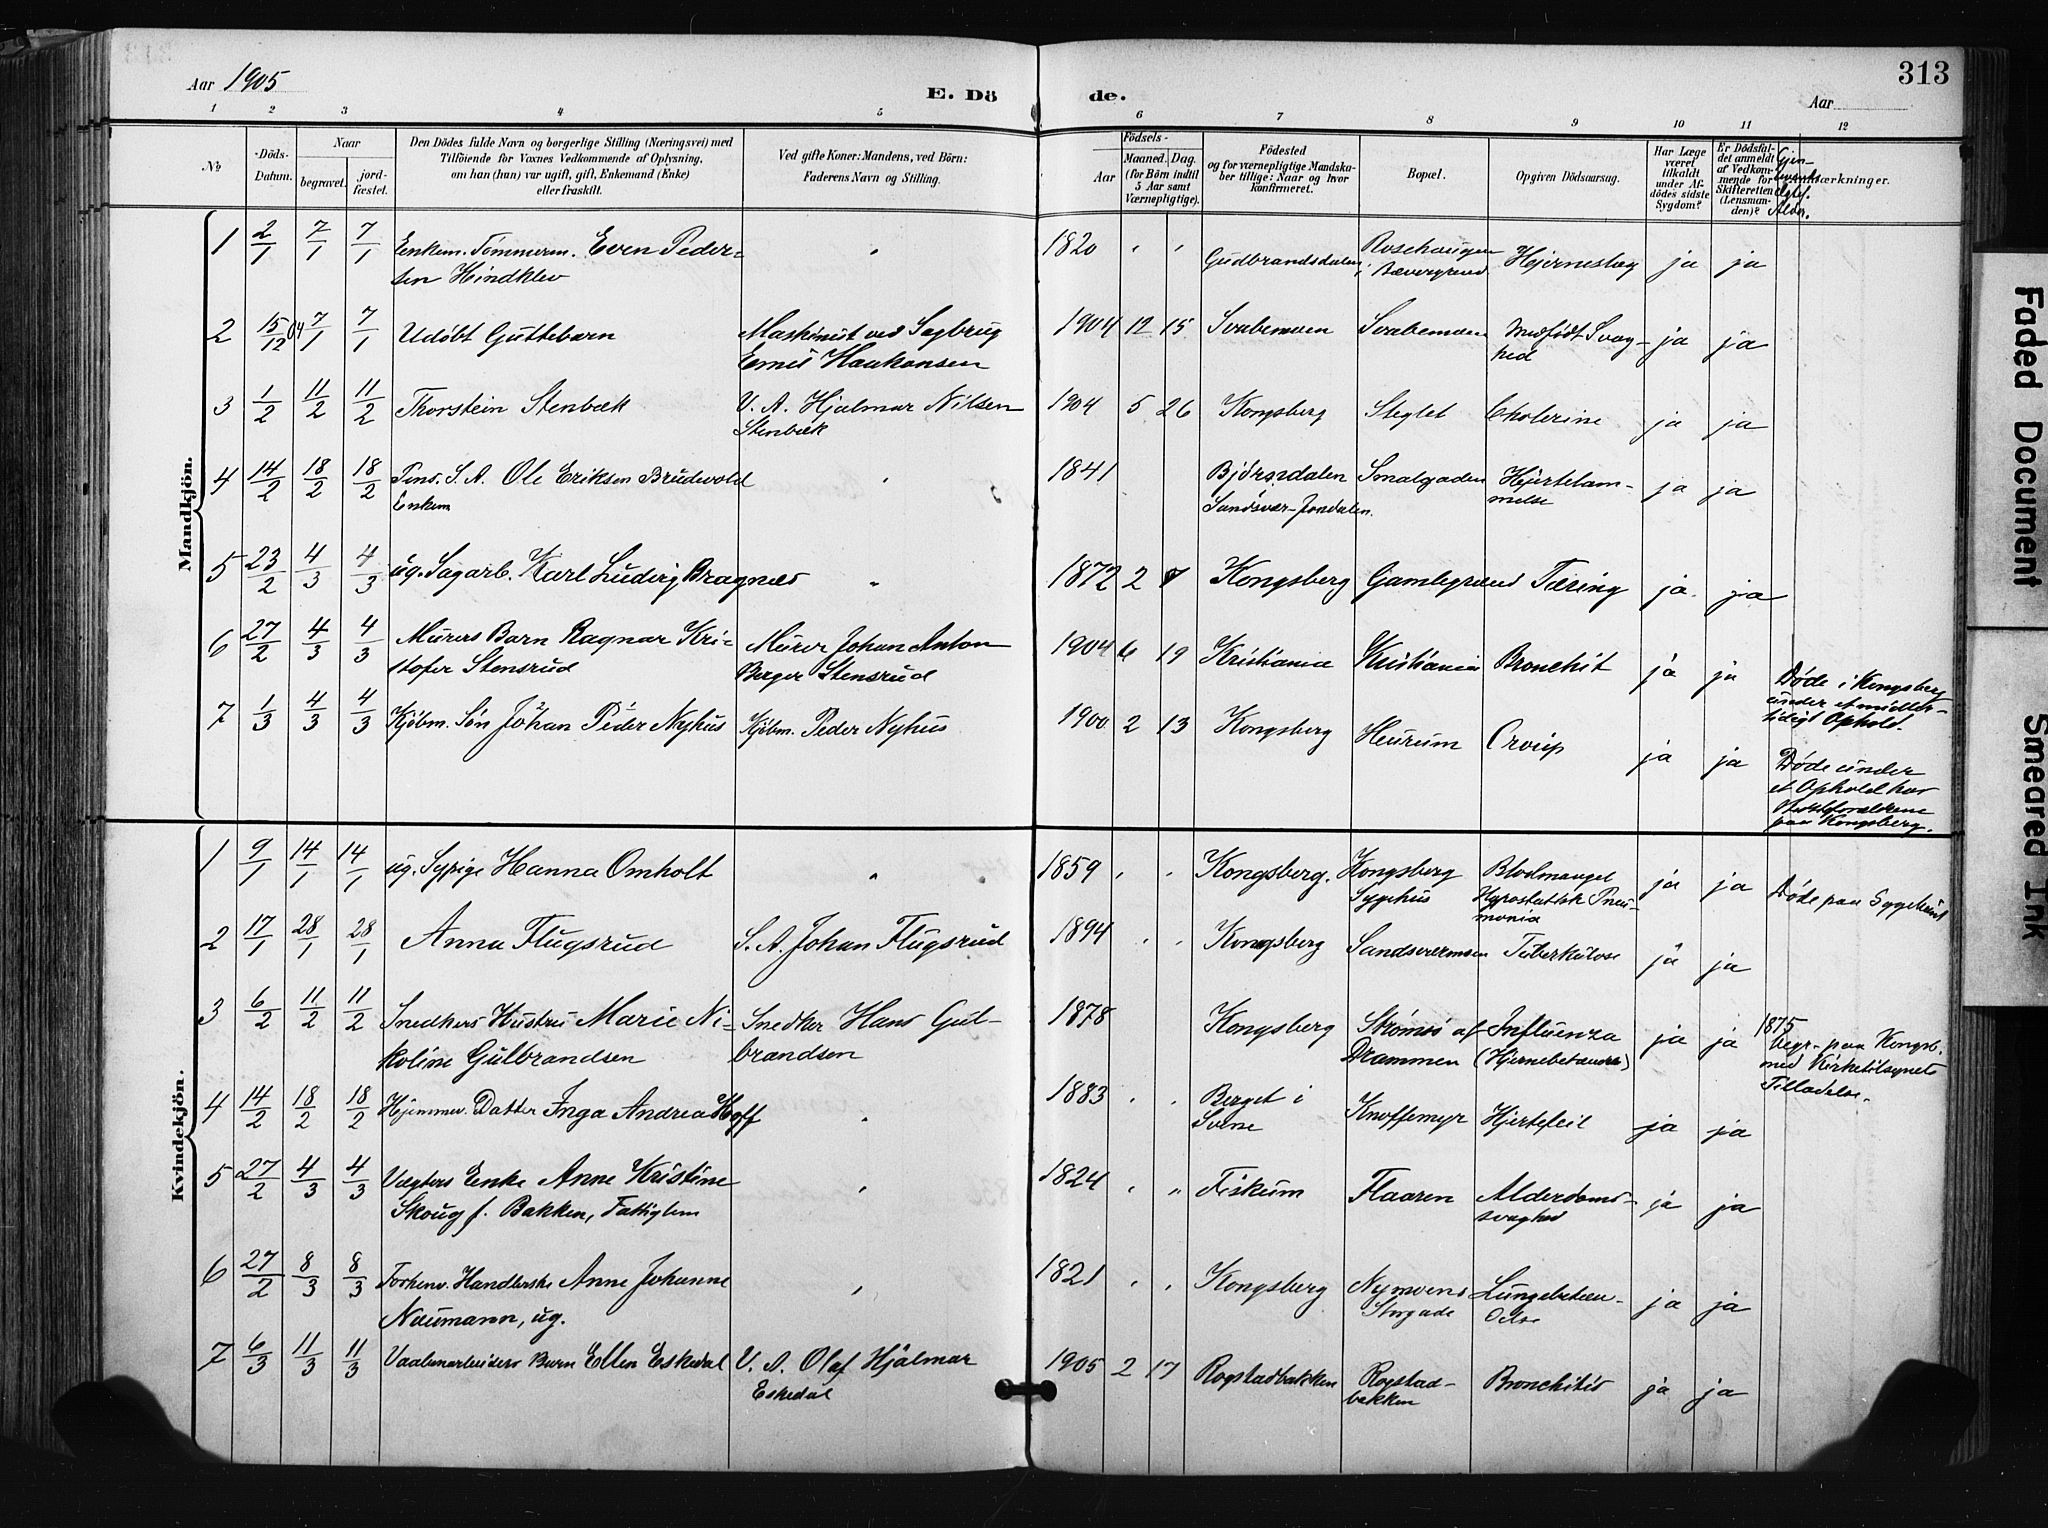 Aar 1905
E. Dö
de.
313
Aar
1 2 3 4 5 6 7 8 9 10 11 12
No
Döds-Datum.
Naar
begravet.
jord-fæstet.
Den Dödes fulde Navn og borgerlige Stilling (Næringsvei) med
Tilföiende for Voxnes Vedkommende af Oplysning,
om han (hun) var ugift, gift, Enkemand (Enke)
eller fraskilt.
Ved gifte Koner: Mandens, ved Börn:
Faderens Navn og Stilling.
Födsels-
Aar
Maaned. Dag.
(for Börn indtil
5 Aar samt
Værnepligtige).
Födested
og for værnepligtige Mandska-
ber tillige: Naar og hvor
konfirmeret.
Bopæl.
Opgiven Dödsaarsag.
Har Læge
været
tilkaldt
under Af-
dödes sidste
Sygdom?
Er Dödsfal-
det anmeldt
af Vedkom-
mende for
Skifteretten
(Lensman-
den)?
Anmærkninger.
Mandkjön.
1 2/1 7/1 7/1 Enkem. Tømmerm. Even Peder- " 1820 " " Gudbrandsdalen Rosehaugen Hjerneslag ja ja
sen Hindklev i Bævergrend
2 15/12 04 7/1 7/1 Udøbt Guttebarn Maskinist ved Sagbrug 1904 12 15 Svabemoen Svabemoen Medfødt Svag- ja ja
Emil Haakonsen hed
3 1/2 11/2 11/2 Thorstein Stenbæk V. A. Hjalmar Nilsen 1904 5 26 Kongsberg Steglet Cholerine ja ja
Stenbæk
4 14/2 18/2 18/2 Pens. S. A. Ole Eriksen Brudevold " 1841 Bjørndalen Smalgaden Hjertelam- ja ja
Enkem Sandsvær-Jondalen. melse
5 23/2 4/3 4/3 ug. Sagarb. Karl Ludvig Bragnæs " 1872 2 7 Kongsberg Gamlegrend Tæring ja ja
6 27/2 4/3 4/3 Murers Barn Ragnar Kri- Murer Johan Anton 1904 6 19 Kristiania Kristiania Bronchit ja ja Døde i Kongsberg
stofer Stensrud Berger Stensrud under et midler-
tidigt Ophold.
7 1/3 4/3 4/3 Kjøbm. Søn Johan Peder Nyhus Kjøbm. Peder Nyhus 1900 2 13 Kongsberg Heurum Croup ja ja Døde under
et Ophold hos
paa Kongsberg.
Kvindekjön.
1 9/1 14/1 14/1 ug. Sypige Hanna Omholt " 1859 " " Kongsberg. Kongsberg Blodmangel ja ja Døde paa Sygehuset
Sygehus Hypostatisk Pneu-
monia
2 17/1 28/1 28/1 Anna Flugsrud S. A. Johan Flugsrud 1894 " " Kongsberg Sandsværmoen Tuberkulose ja ja
3 6/2 11/2 11/2 Snedkers Hustru Marie Ni- Snedker Hans Gul- 1878 Kongsberg Strømsø af Influenza ja ja 1875
koline Gulbrandsen brandsen Drammen (Hjernebetændelse) begr. paa Kongsb.
med Kirketilsynets
Tilladelse.
4 14/2 18/2 18/2 Hjemmev. Datter Inga Andrea Hoff " 1883 " " Berget i Knoffemyr Hjertefeil ja ja
Svene
5 27/2 4/3 4/3 Vægters Enke Anne Kristine " 1824 " " Fiskum Flaaren Alderdoms- ja ja
Skoug f. Bakken, Fattiglem svaghed
6 27/2 8/3 8/3 Forhenv. Handlerske Anne Johanne " 1821 " " Kongsberg Nymoens Lungebetæn- ja ja
Naumann, ug. Storgade delse
7 6/3 11/3 11/3 Vaabenarbeiders Barn Ellen Eskedal V. A. Olaf Hjalmar 1905 2 17 Rogstadbakken Rogstad- Bronchitis ja ja
Eskedal bakken
Faded Document
Smeared Ink